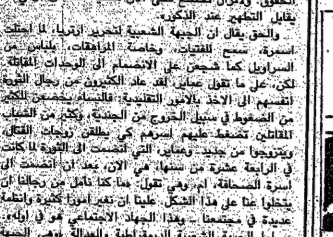 يقابل التطهير عند الذكور».
والحق يقال ان الجبهة الشعبية لتحرير ارتريا، لما احتلت
اسمرة، سمح للفتيات، وخاصة المراهقات، بلباس
السراويل كما شجعن على الانضمام الى الوحدات المقاتلة.
لكن، على ما تقول عنابر، لقد عاد الكثيرون من رجال الثورة
انفسهم الى الاخذ بالامور التقليدية. فالنساء يخضعن للكثير
من الضغوط في سبيل الخروج من الجندية، وكثير من الشباب
المقاتلين تضغط عليهم اسرهم كي يطلقن زوجات القتال،
ويتزوجوا من جديد. وعنابر، التي انضمت الى الثورة لما كانت
في الرابعة عشرة من سنها، هي الآن، بعد ان انضمت الى
اسرة الصحافة، ام. وهي تقول: «ما كنا نأمل من رجالنا ان
يتخلوا عنا على هذا الشكل. علينا ان نغير امورا كثيرة وانظمة
عديدة في مجتمعنا - وهذا الجهاد الاجتماعي هو في اوله».